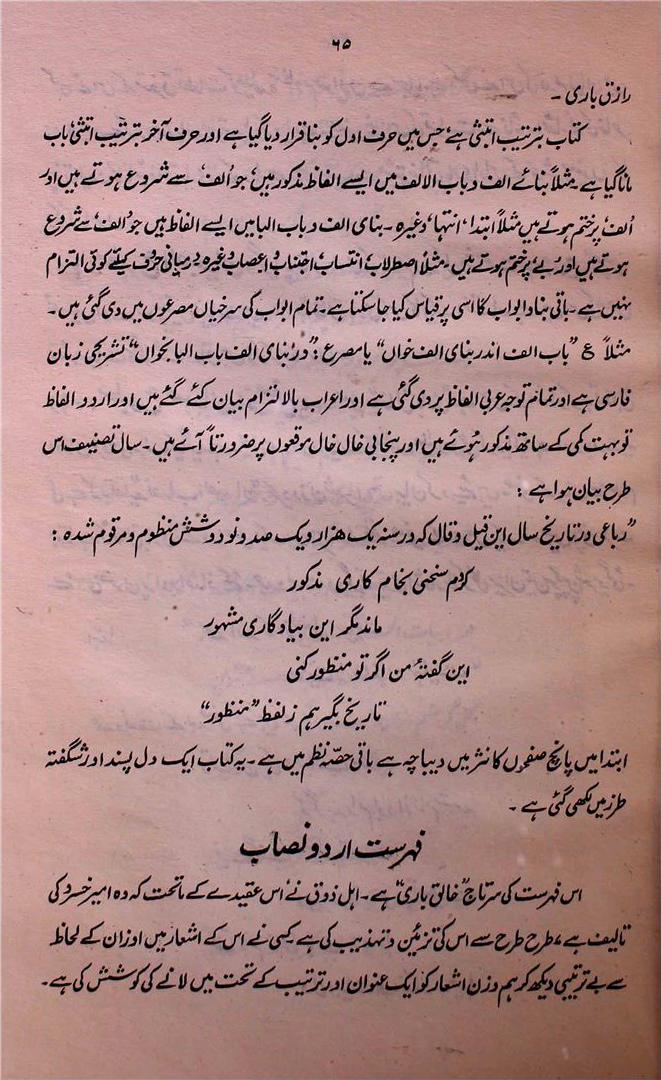 ۶۵
رازق باری ۔
کتاب بترتیب ابتثی ہے، جس میں حرف اول کو بنا قرار دیا گیا ہے اور حرف آخر بترتیب ابتثی، باب
مانا گیا ہے ۔ مثلاً بنائے الف و باب الالف میں ایسے الفاظ مذکور ہیں، جو 'الف' سے شروع ہوتے ہیں اور
'الف' پر ختم ہوتے ہیں مثلاً ابتدا، انتہا، وغیرہ ۔ بنای الف و باب البا میں ایسے الفاظ ہیں جو 'الف' سے شروع
ہوتے ہیں اور 'بے' پر ختم ہوتے ہیں ۔ مثلاً اصطرلاب، انتساب، اجتناب و اعصاب وغیرہ درمیانی حروف کیلئے کوئی التزام
نہیں ہے ۔ باقی بنا و ابواب کا اسی پر قیاس کیا جا سکتا ہے ۔ تمام ابواب کی سرخیاں مصرعوں میں دی گئی ہیں ۔
مثلاً ع "باب الف اندر بنای الف خواں" یا مصرع : "در بنای الف باب البا بخواں" تشریحی زبان
فارسی ہے اور تمام توجہ عربی الفاظ پر دی گئی ہے اور اعراب بالالتزام بیان کئے گئے ہیں اور اردو الفاظ
تو بہت کمی کے ساتھ مذکور ہوئے ہیں اور پنجابی خال خال موقعوں پر ضرورتاً آئے ہیں ۔ سال تصنیف اس
طرح بیان ہوا ہے :
"رباعی در تاریخ سال این قیل و قال کہ در سنہ یک ہزار و یک صد و نود و شش منظوم و مرقوم شدہ :
کردم سخنی بخام کاری مذکور
ماند مگر این بیادگاری مشہور
این گفتۂ من اگر تو منظور کنی
تاریخ بگیرہم ز لفظ "منظور"
ابتدا میں پانچ صفحوں کا نثر میں دیباچہ ہے باقی حصّہ نظم میں ہے ۔ یہ کتاب ایک دل پسند اور شگفتہ
طرز میں لکھی گئی ہے ۔
فہرست اردو نصاب
اس فہرست کی سرتاج "خالق باری" ہے ۔ اہل ذوق نے، اس عقیدے کے ماتحت کہ وہ امیر خسرو کی
تالیف ہے، طرح طرح سے اس کی تزئین و تہذیب کی ہے کسی نے اس کے اشعار میں اوزان کے لحاظ
سے بے ترتیبی دیکھ کر ہم وزن اشعار کو ایک عنوان اور ترتیب کے تحت میں لانے کی کوشش کی ہے ۔